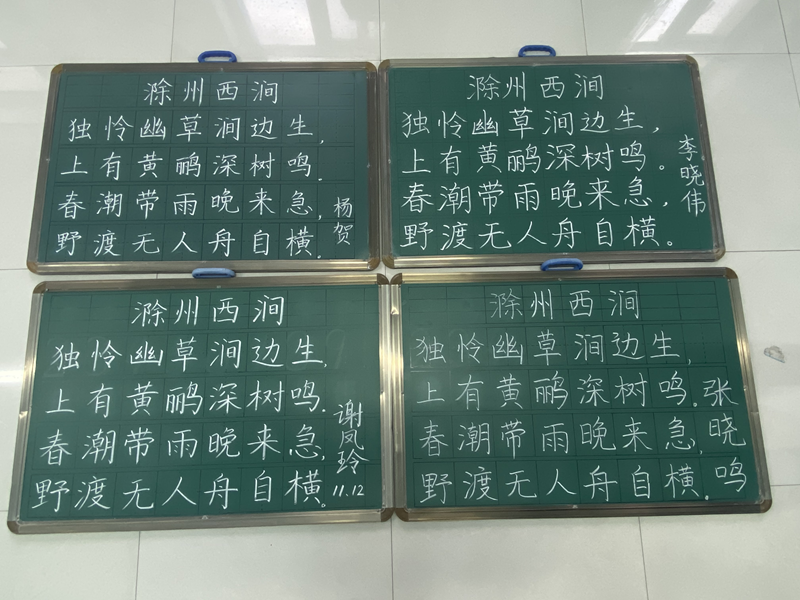 滁州西涧
独怜幽草涧边生，
上有黄鹂深树鸣。
春潮带雨晚来急，
野渡无人舟自横。
杨贺
滁州西涧
独怜幽草涧边生，
上有黄鹂深树鸣。
春潮带雨晚来急，
野渡无人舟自横。
李晓伟
滁州西涧
独怜幽草涧边生，
上有黄鹂深树鸣.
春潮带雨晚来急，
野渡无人舟自横。
谢凤玲
11.12
滁州西涧
独怜幽草涧边生，
上有黄鹂深树鸣。
春潮带雨晚来急，
野渡无人舟自横。
张晓鸣